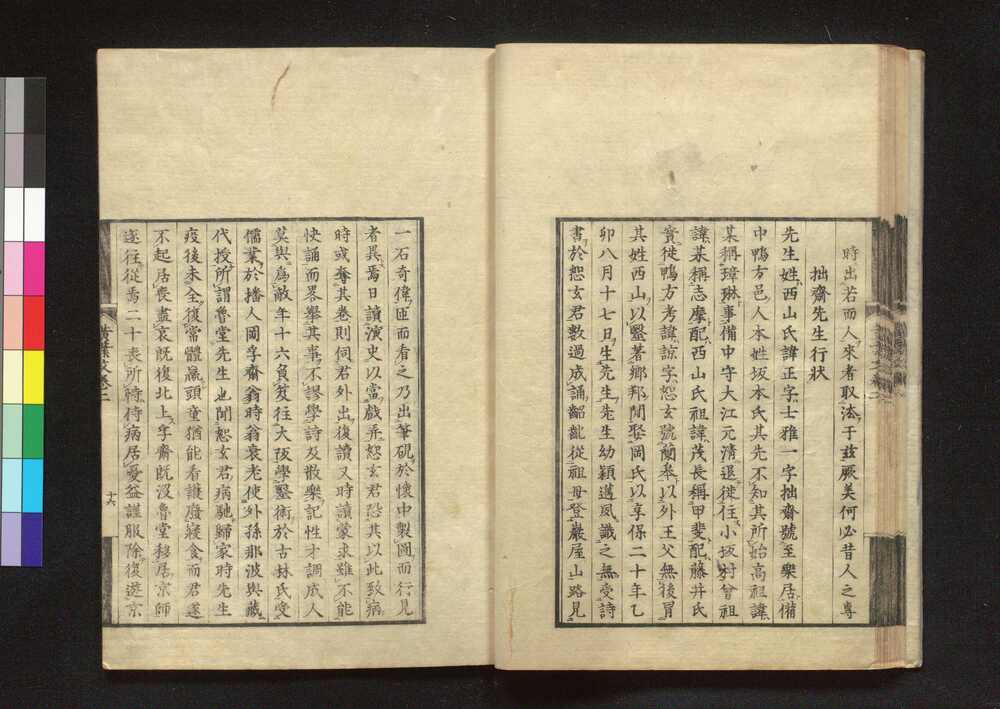 時出若而人來者取法于玆厥美何必昔人之專
拙齋先生行狀
先生姓西山氏諱正字士雅一字拙齋號至樂居備
中鴨方邑人本姓坂本氏其先不知其所始高祖諱
某稱璋琳事備中守大江元清退徙住小坂村曾祖
諱某稱志摩配西山氏祖諱茂長稱甲斐配藤井氏
實徙鴨方考諱諒字恕玄號蘭皐以外王父無後冒
其姓西山以醫著鄉邦閒娶岡氏以享保二十年乙
卯八月十七日生先生先生幼穎邁夙識之無受詩
書於恕玄君數過成誦齠齔從祖母登嚴屋山路見
一石奇偉匝而看之乃出筆硯於懷中製圖而行見
者異焉日讀演史以當戲弄恕玄君恐其以此致病
時或奪其卷則伺君外出復讀又時讀蒙求雖不能
快誦而畧擧其事不謬學詩及散樂記性才調成人
莫與爲敵年十六負笈往大阪學醫術於古林氏受
儒業於播人岡孚齋翁時翁衰老使外孫那波與藏
代授所謂魯堂先生也聞恕玄君病馳歸家時先生
疫後未全復常體羸頭童猶能看護廢寢食而君遂
不起居喪盡哀既復北上孚齋既沒魯堂移居京師
遂往從焉二十喪所恃侍病居憂益謹服除復遊京
黃葉文卷二
十六